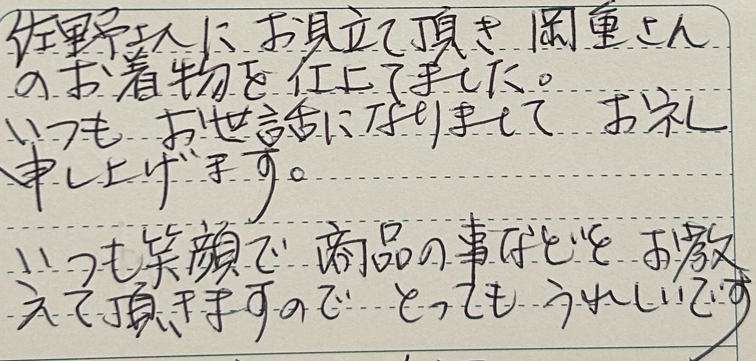 佐野さんに お見立て頂き 岡重さん
のお着物を 仕上てました。
いつも お世話になりまして お礼
申し上げます。
いつも笑顔で 商品の事などを お教
えて頂きますので とっても うれしいです